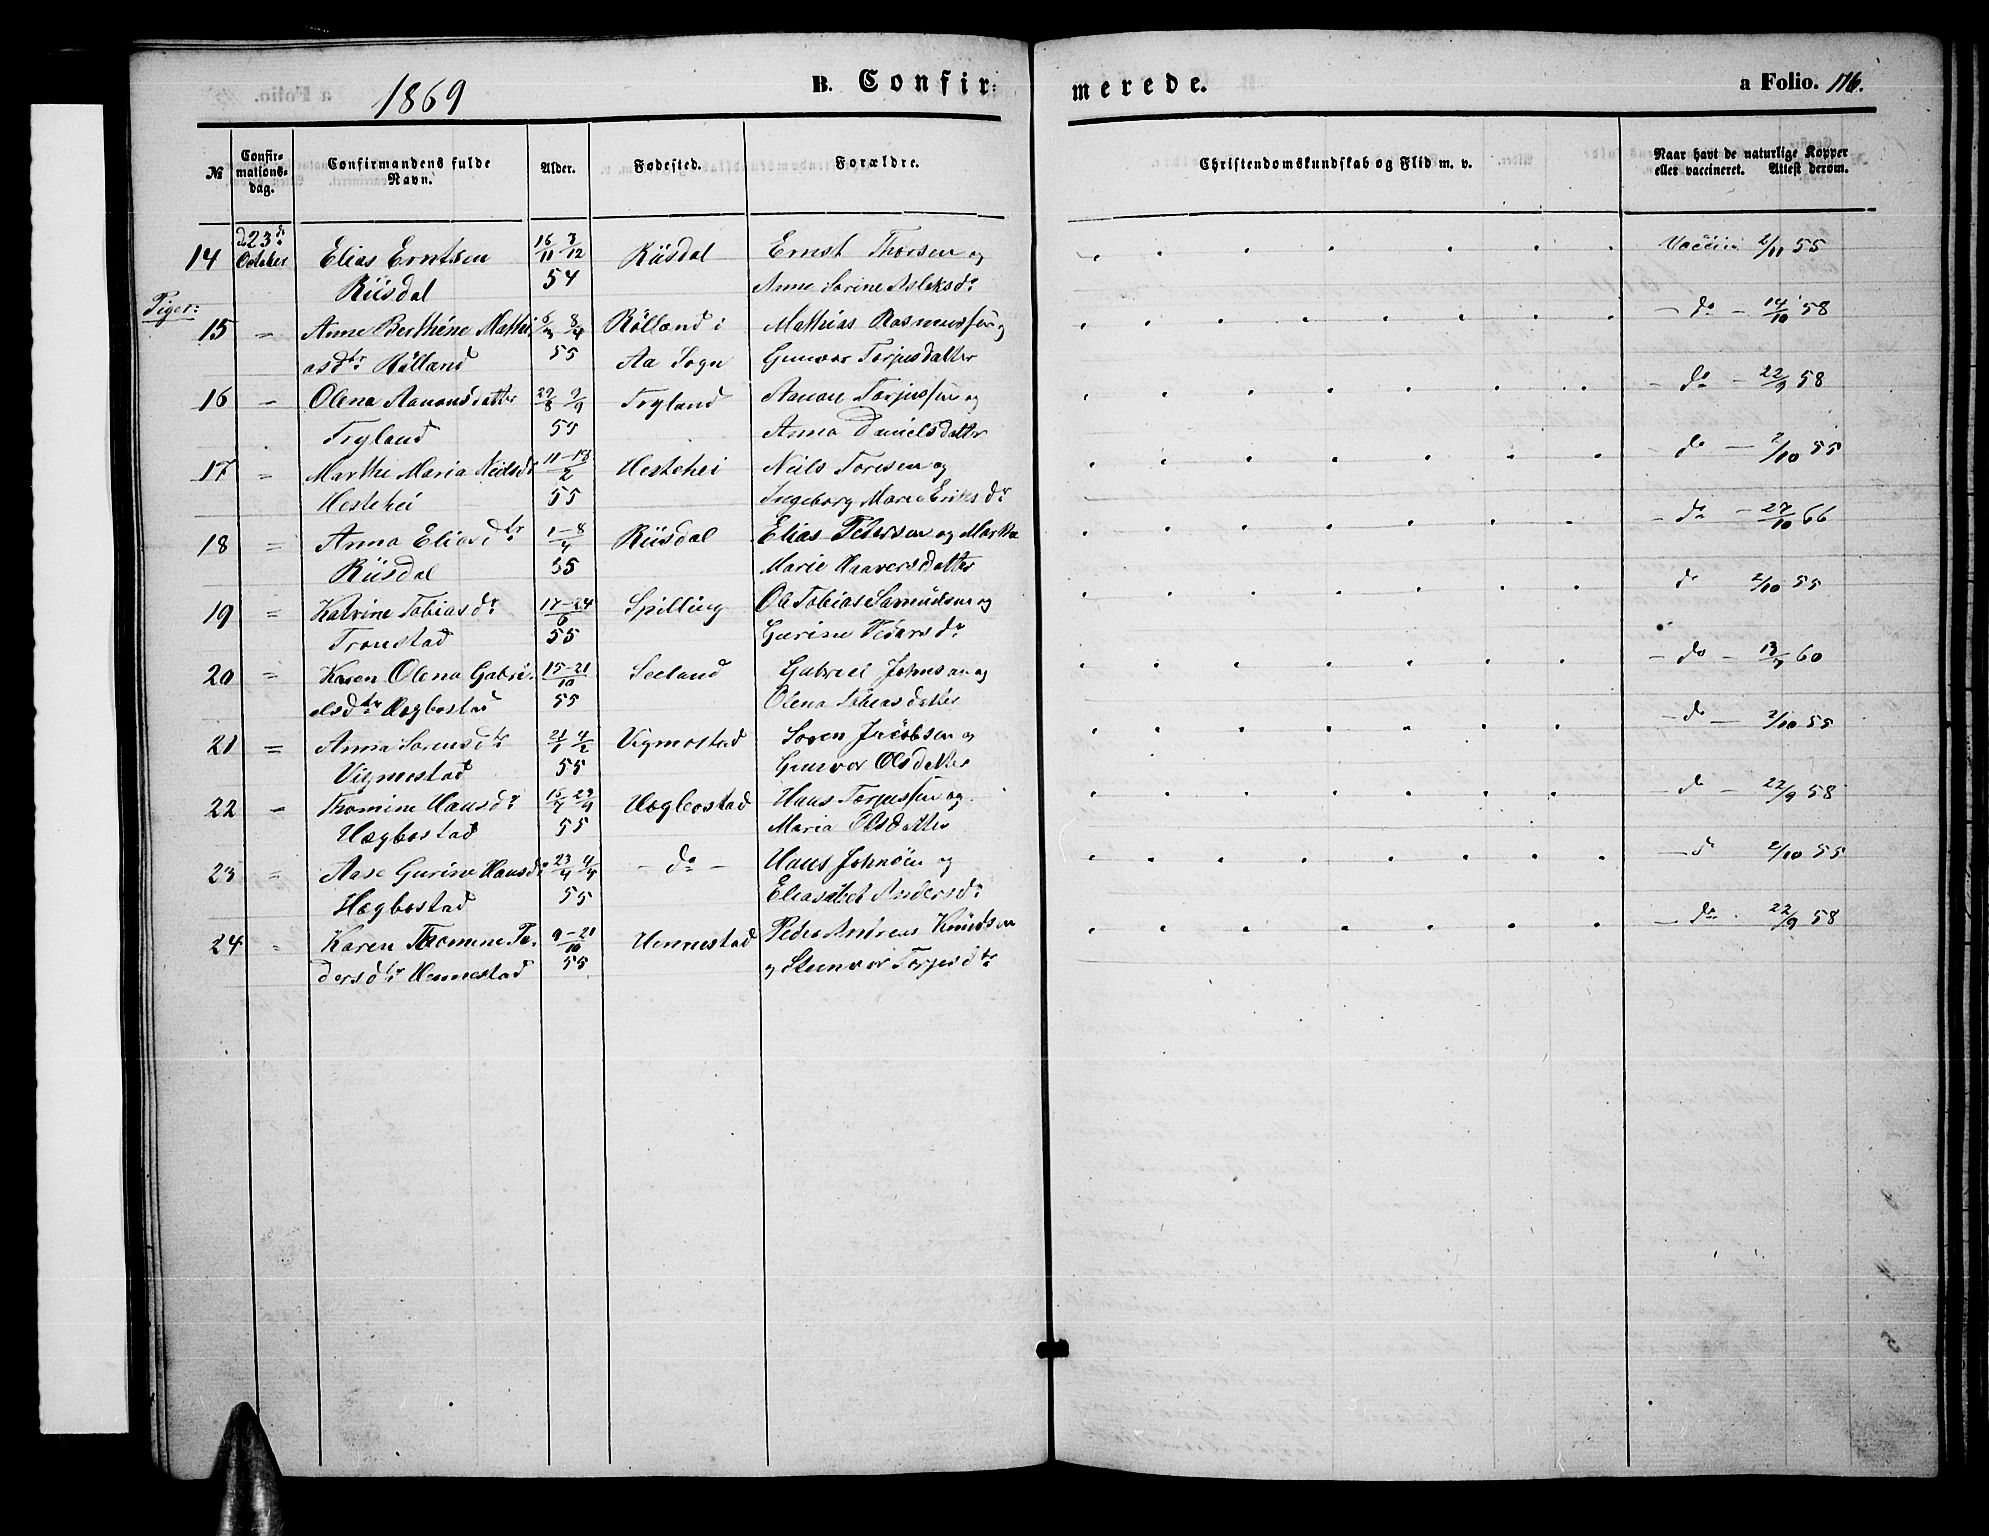 1869 B. Confirmerede. a Folio. 116.
№ Confirmationsdag. Confirmandens fulde Navn. Alder. Fødested. Forældre. Christendomskundskab og Flid m. v. Naar havt de naturlige Kopper eller vaccineret. Attest derom.
14 d 23de October Elias Erntsen 16/11 3/12 Riisdal Ernst Thorsen og Vaccin 2/11 55
Riisdal 54 Anne Sorine Aslaksdr
Piger:
15 " Anne Berthine Mathi 8/4 Rölland i Mathias Rasmussen og - do - 14/10 58
asdtr Rölland 55 Aa Sogn Gunvor Torjusdatter
16 " Olena Aanonsdatter 22/8 9/9 Tryland Aanon Torjussen og - do - 22/9 58
Tryland 55 Anna Danielsdatter
17 = Marthe Maria Neilsdr 11-18/2 Hestehei Niils Toresen og do - 2/10 55
Hestehei 55 Ingeborg Marie Eriksdr
18 = Anna Eliasdtr 1-8/4 Riisdal Elias Pedersen og Marthe - do - 27/10 66
Riisdal 55 Marie Haaversdatter
19 = Katrine Tobiasdr 17-24/6 Spilling Ole Tobias Samuelsen og do 2/10 55
Tronstad 55 Gurine Vidarsdr
20 = Karen Olena Gabri- 15-21/10 Seeland Gabriel Johnsen og - do - 13/7 60
elsdtr Hægbostad 55 Olena Tobiasdatter
21 = Anna Sorensdtr 21/1 4/2 Vigmostad Soren Jacobsen og - do - 2/10 55
Vigmostad 55 Gunvor Olsdatter
22 " Thomine Hansdr 15/7 Hægbostad Hans Torjussen og do - 22/9 58
Hægbostad 55 Maria Olsdatter
23 " Aase Gurine Hansdr 23/4 Do - Hans Johnsen og - do 2/10 55
Hægbostad 55 Eleasabet Andersdr
24 " Karen Thomine Pe- 9-21/10 Hennestad Peder Andreas Knudsen - do - 22/9 58
dersdtr Hennestad 55 og Stenvor Torjusdtr